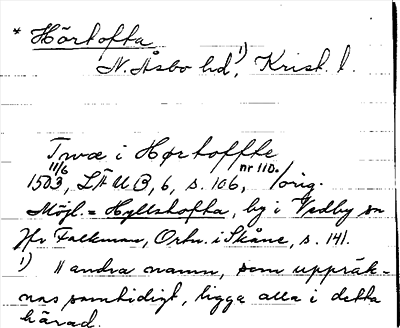 * Hörtofta
N. Åsbo hd¹⁾, Krist. l.
Twæ i Hørtoffte
11/6 nr 110.
1503, LÄUB, 6, s. 106, /orig.
Möjl. = Hyllstofta, by i Vedby sn
Jfr Falkman, Ortn. i Skåne, s. 141.
1) 11 andra namn, som uppräk-
nas samtidigt, ligga alla i detta
härad.